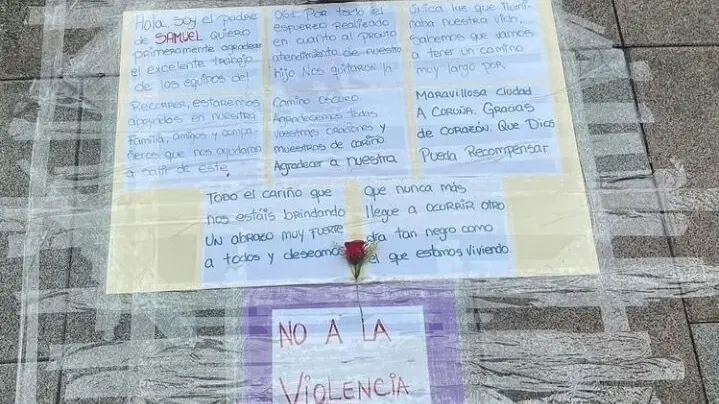 Hola, soy el padre
de SAMUEL quiero
primeramente agradecer
el excelente trabajo
de los equipos del
091. Por todo el
esfuerzo realizado
en cuanto al pronto
atendimiento de nuestro
hijo Nos quitaron la
única luz que ilumi
naba nuestra vida,
Sabemos que vamos
a tener un camino
muy largo por
Recorrer, estaremos
apoyados en nuestra
familia, amigos y compa
ñeros que nos ayudaran
a salir de este
Camino oscuro
Agradecemos todas
vuestras oraciones y
muestras de cariño
Agradecer a nuestra
Maravillosa ciudad
A Coruña. Gracias
de corazón. Que Dios
Pueda Recompensar
Todo el cariño que
nos estáis brindando
un abrazo muy fuerte
a todos y deseamos
que nunca más
llegue a ocurrir otro
día tan negro como
el que estamos viviendo.
NO A LA
VIOLENCIA